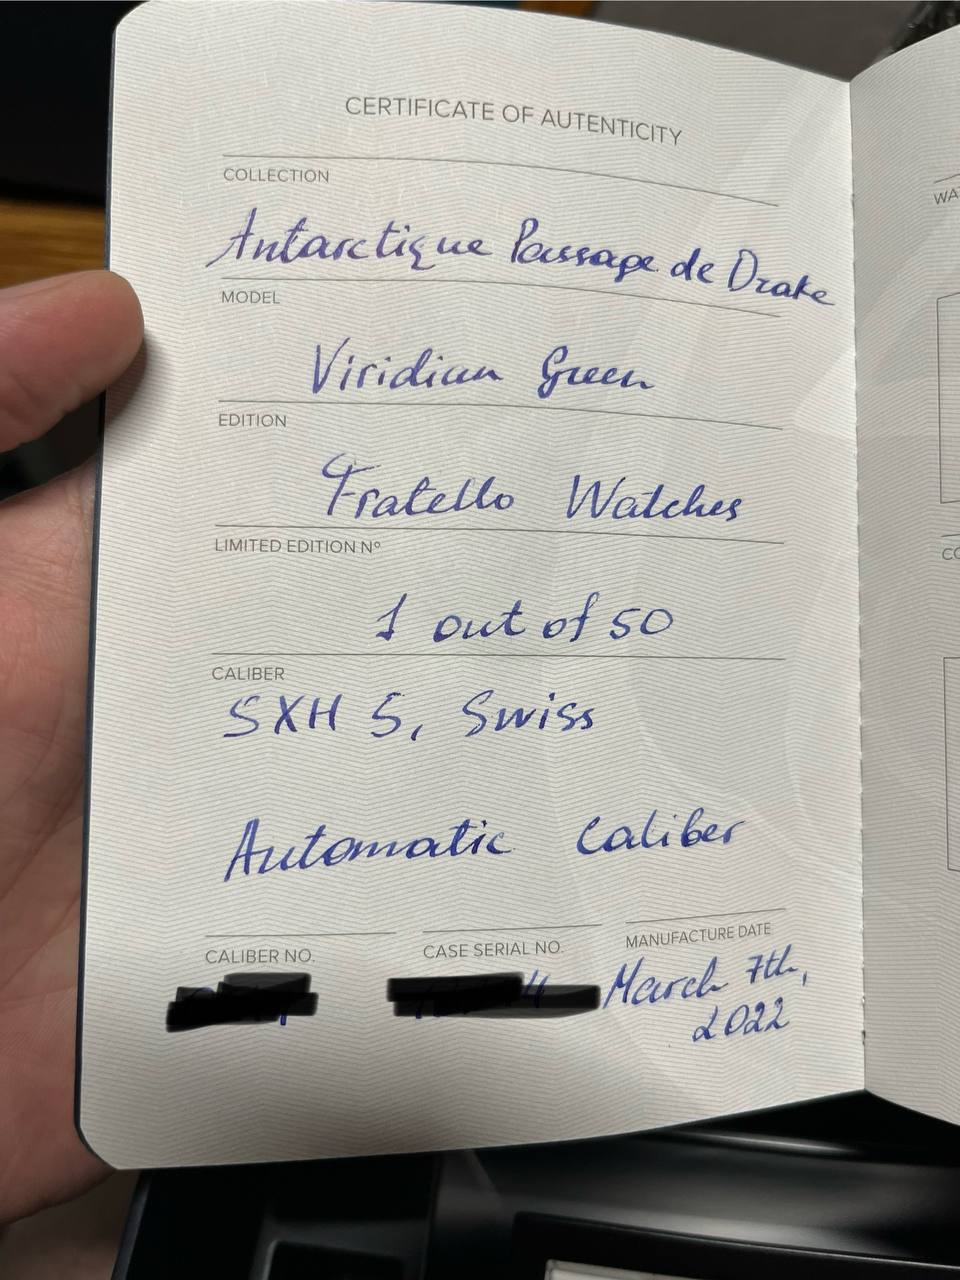 CERTIFICATE OF AUTENTICITY
COLLECTION
Antarctique Passage de Drake
MODEL
Viridian Green
EDITION
Fratello Watches
LIMITED EDITION Nº
1 out of 50
CALIBER
SXH 5, Swiss
Automatic Caliber
CALIBER NO.
CASE SERIAL NO.
MANUFACTURE DATE
March 7th,
2022